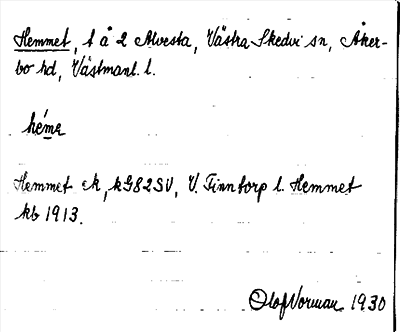 Hemmet, t å 2 Alvesta, Västra Skedvi sn, Åker-
bo hd, Västmanl. l.
héme
Hemmet ek, kG82SV, V. Finntorp l. Hemmet
kb 1913.
Olof Norman 1930